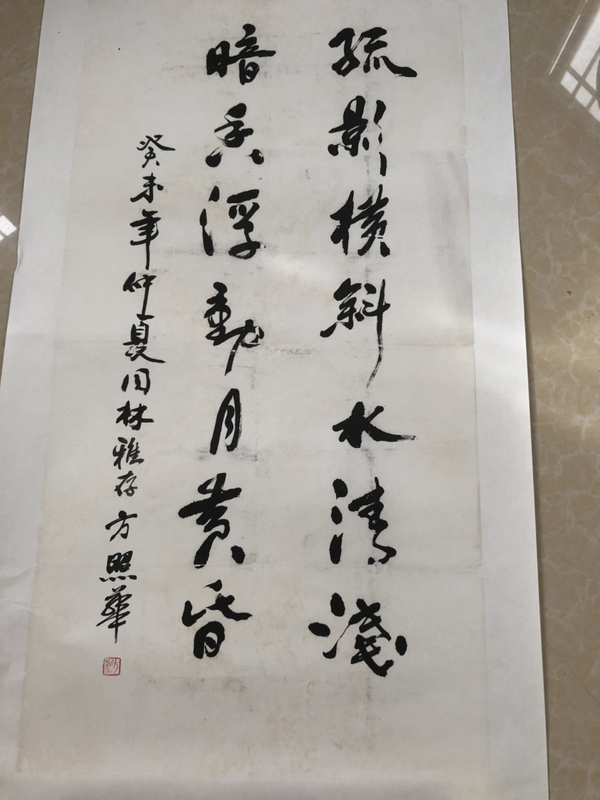 疏影橫斜水清淺
暗香浮動月黄昏
癸未年仲夏月林雅存方照華